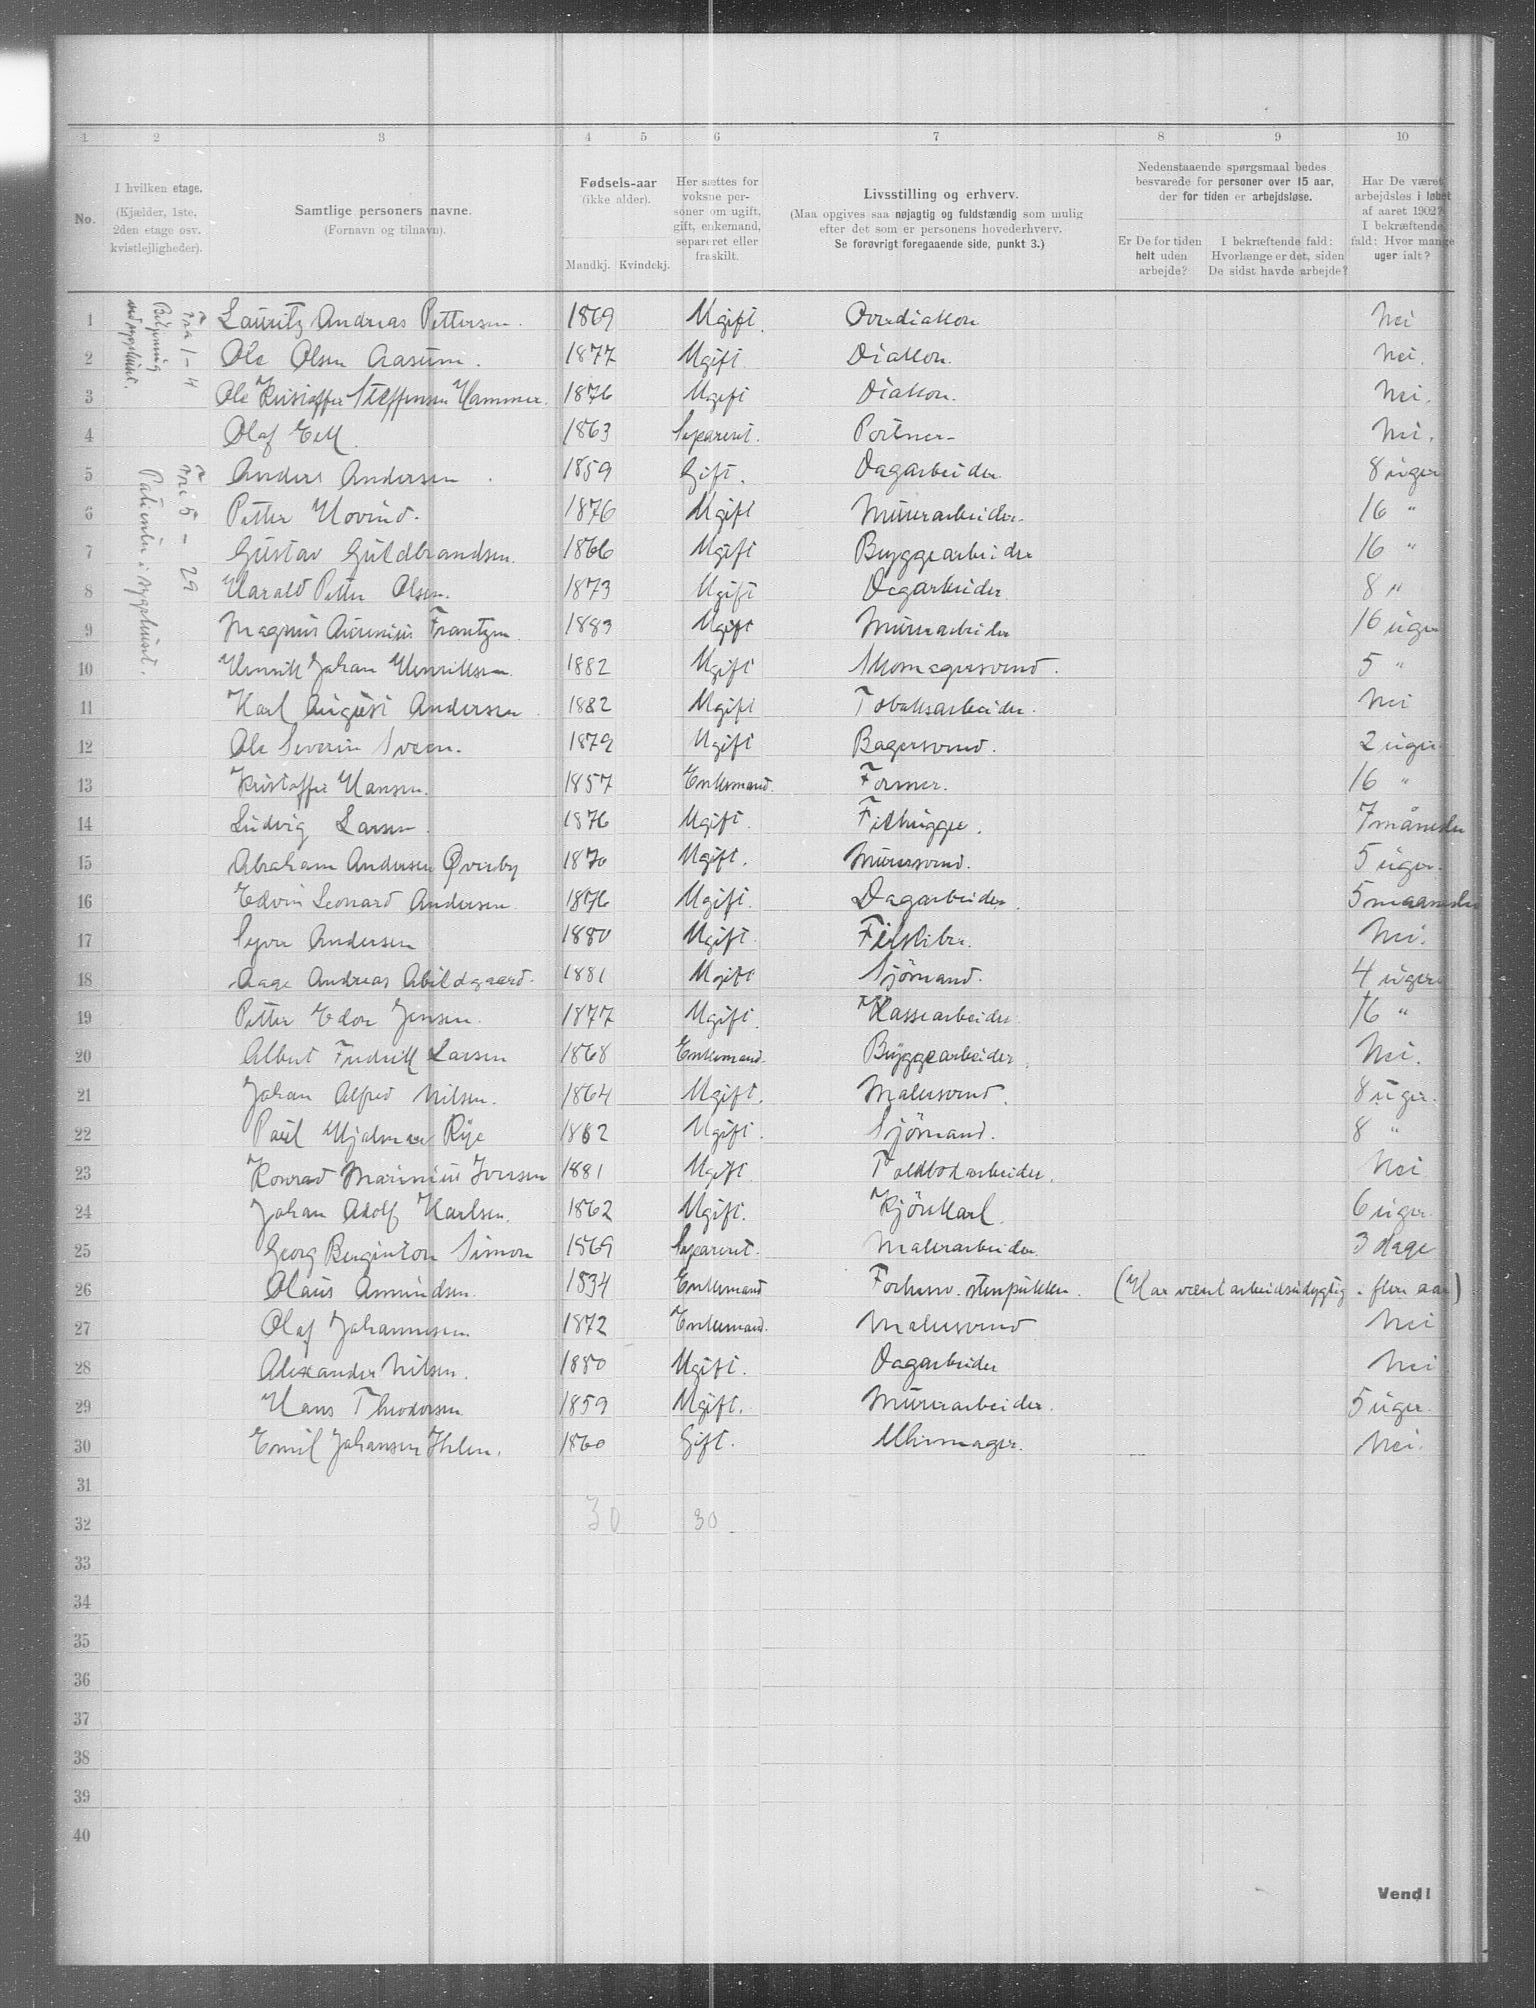 1 2 3 4 5 6 7 8 9 10
No.
I hvilken etage.
(Kjælder, 1ste,
2den etage osv.
kvistlejligheder).
Samtlige personers navne.
(Fornavn og tilnavn).
Fødsels-aar
(ikke alder).
Mandkj. Kvindekj.
Her sættes for
voksne per-
soner om ugift,
gift, enkemand,
separeret eller
fraskilt.
Livsstilling og erhverv.
(Maa opgives saa nøjagtig og fuldstændig som mulig
efter det som er personens hovederhverv.
Se forøvrigt foregaaende side, punkt 3.)
Nedenstaaende spørgsmaal bedes
besvarede for personer over 15 aar,
der for tiden er arbejdsløse.
Er De for tiden
helt uden
arbejde?
I bekræftende fald:
Hvorlænge er det, siden
De sidst havde arbejde?
Har De været
arbejdsløs i løbet
af aaret 1902?
I bekræftende
fald: Hvor mange
uger ialt?
Fra 1-4
Betjening
ved sygehuset.
Fri 5 - 29
Patienter i sygehuset.
1 Lauritz Andreas Pettersen. 1869 Ugift. Overdiakon Nei
2 Ole Olsen Aasum. 1877 Ugift. Diakon. Nei.
3 Ole Kristoffer Steffensen Hammer. 1876 Ugift Diakon. Nei.
4 Olaf 1863 Separert. Portner Nei.
5 Anders Andersen 1859 Gift. Dagarbeider 8 uger
6 Petter Hovind. 1876 Ugift Murerarbeider. 16 "
7 Gustav Guldbrandsen. 1866 Ugift Byggearbeider 16 "
8 Harald Petter Olsen. 1873 Ugift Dagarbeider 8 "
9 Magnus Frantzen. 1883 Ugift Murerarbeider 16 uger
10 Henrik Johan Henriksen. 1882 Ugift Skomagersvend. 5 "
11 Karl August Andersen. 1882 Ugift Tobaksarbeider. Nei
12 Ole Severin Sveen. 1879 Ugift Bagersvend. 2 uger.
13 Kristoffer Hansen. 1857 Enkemand. Former. 16 "
14 Ludvig Larsen. 1876 Ugift. Filhugger. 7 måneder
15 Abraham Andersen Øverby 1870 Ugift. Murersvend. 5 uger.
16 Edvin Leonard Andersen. 1876 Ugift. Dagarbeider. 5 maaneder
17 Syver Andersen 1880 Ugift. Nei.
18 Aage Andreas Abildgaard. 1881 Ugift Sjömand. 4 uger
19 Petter Edor Jensen. 1877 Ugift. Kassearbeider 16 "
20 Albert Fredrik Larsen 1868 Enkemand. Byggearbeider. Nei.
21 Johan Alfred Nilsen. 1864 Ugift. Malersvend. 8 uger.
22 Paul Hjalmar Rye 1862 Ugift. Sjömand. 8 "
23 Konrad Marinius Iversen 1881 Ugift. Toldbodarbeider. Nei
24 Johan Adolf Karlsen. 1862 Ugift. Kjörekarl. 6 uger.
25 Georg Simon 1869 Separert. Malerarbeider. 3 dage
26 Olaus Amundsen. 1834 Enkemand Forhenv. stenpukker. (Har vært arbeidsudygtig i flere aar)
27 Olaf Johannesen 1872 Enkemand. Malersvend Nei
28 Alexander Nilsen. 1880 Ugift. Dagarbeider Nei
29 Hans Theodorsen 1859 Ugift. Murerarbeider. 5 uger.
30 Emil Johansen Ihlen. 1860 Gift. Uhrmager. Nei.
31
32 30 30
33
34
35
36
37
38
39
40
Vend!